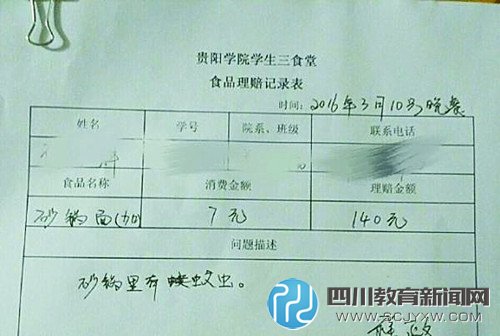 贵阳学院学生三食堂
食品理赔记录表
时间：2016年3月10号晚餐
姓名 学号 院系、班级 联系电话
食品名称 消费金额 理赔金额
砂锅面(加) 7元 140元
问题描述
砂锅里有蚊虫。
四川教育新闻网
WWW.SCJYXW.COM